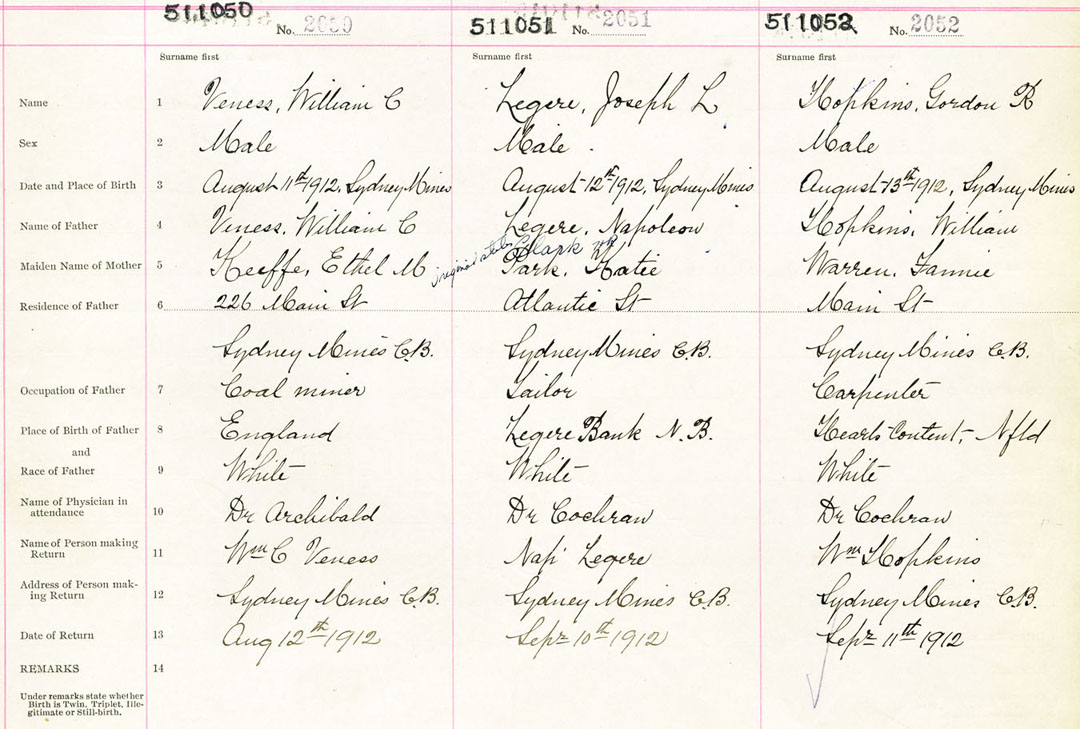 511050 No. 2050 511051 No. 2051 511052 No. 2052
Surname first Surname first Surname first
Name 1 Veness, William C Legere, Joseph L Hopkins, Gordon R
Sex 2 Male Male Male
Date and Place of Birth 3 August 11th 1912, Sydney Mines August 12th 1912, Sydney Mines August 13th 1912, Sydney Mines
Name of Father 4 Veness, William C Legere, Napoleon Hopkins, William
Clark
Maiden Name of Mother 5 Keeffe, Ethel M Park, Katie Warren, Fannie
Residence of Father 6 226 Main St Atlantic St Main St
Sydney Mines C.B. Sydney Mines C.B. Sydney Mines C.B.
Occupation of Father 7 Coal miner Tailor Carpenter
Place of Birth of Father 8 England Legere Bank N.B. Hearts Content, Nfld
and
Race of Father 9 White White White
Name of Physician in
attendance 10 Dr Archibald Dr Cochran Dr Cochran
Name of Person making
Return 11 Wm C Veness Nap' Legere Wm Hopkins
Address of Person mak-
ing Return 12 Sydney Mines C.B. Sydney Mines C.B. Sydney Mines C.B.
Date of Return 13 Aug 12th 1912 Sept 10th 1912 Sept 11th 1912
REMARKS 14
Under remarks state whether
Birth is Twin, Triplet, Ille-
gitimate or Still-birth.